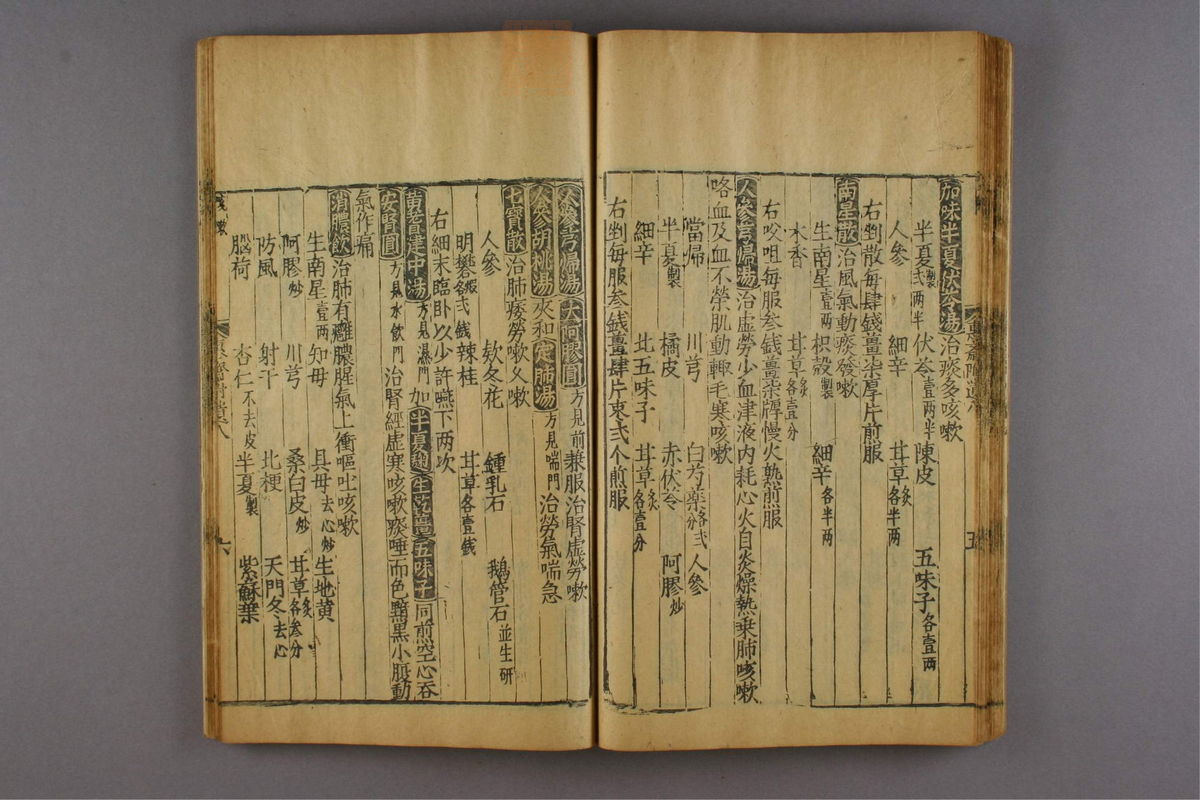 加味半夏茯苓湯治痰多咳嗽
半夏製弍两半 伏苓壹两半 陳皮 五味子各壹两
人參 細辛 甘草炙各半两
右剉散每肆錢薑柒厚片煎服
南星散治風氣動痰發嗽
生南星壹两 枳殼製 細辛各半两
木香 甘草各壹分
右㕮咀每服叁錢薑柒片慢火熟煎服
人參芎歸湯治虛勞少血津液內耗心火自炎燥熱乗肺咳嗽
咯血及血不榮肌動輒毛寒咳嗽
當歸 川芎 白芍藥各弍分 人參
半夏製 橘皮 赤伏苓 阿膠炒
細辛 北五味子 甘草炙各壹分
右剉每服叁錢薑肆片棗弍个煎服
人參芎歸湯 大阿膠圓方見前兼服治腎虛勞嗽
人參胡桃湯夾和定肺湯方見喘門治勞氣喘急
七寶散治肺痿勞嗽久嗽
人參 欵冬花 鍾乳石 鵝管石並生研
明礬煅各弍錢 辣桂 甘草各壹錢
右細末臨卧以少許嚥下两次
黄耆建中湯方見濕門加半夏麹生薑五味子同煎空心吞
安腎圓方見水飲門治腎經虛寒咳嗽痰唾面色黧黒小腹動
氣作痛
消膿飲治肺有癰膿腥氣上衝嘔吐咳嗽
生南星壹两 知母 貝母去心炒 生地黄
阿膠炒 川芎 桑白皮炒 甘草炙各叁分
防風 射干 北梗 天門冬去心
腦荷 杏仁不去皮 半夏製 紫蘇葉
六